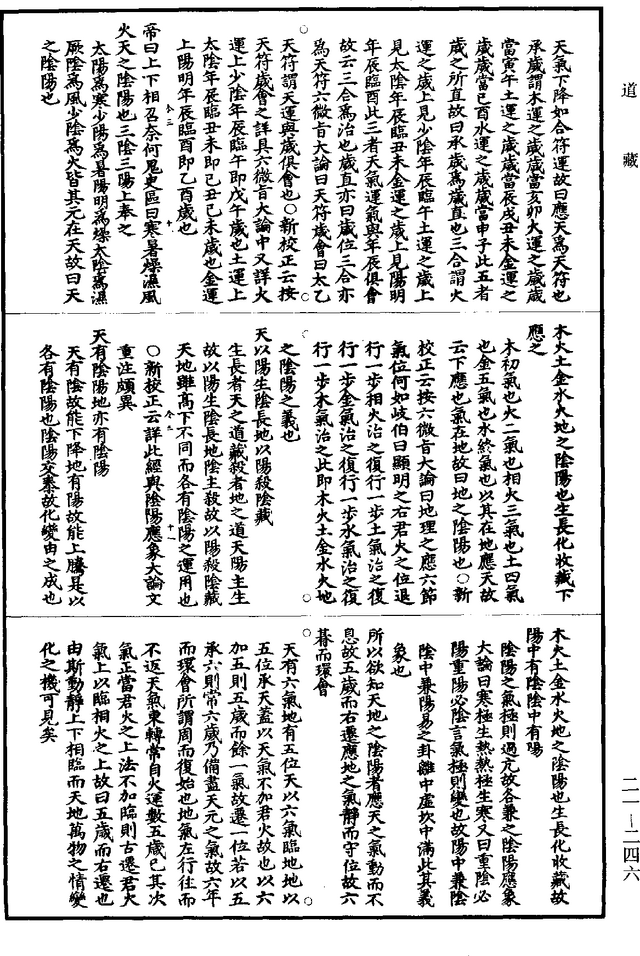 道藏
天氣下降如合符運故曰應天爲天符也
承歲謂木運之歲歲當亥卯火運之歲歲
當寅午土運之歲歲當辰戌丑未金運之
歲歲當巳酉水運之歲歲當申子此五者
歲之所直故曰承歲爲歲直也三合謂火
運之歲上見少陰年辰臨午土運之歲上
見太陰年辰臨丑未金運之歲上見陽明
年辰臨酉此三者天氣運氣與年辰俱會
故云三合爲治也歲直亦曰歲位三合亦
爲天符六微旨大論曰天符歲會曰太乙
天符謂天運與歲俱會也○新校正云按
天符歲會之詳具六微旨大論中又詳火
運上少陰年辰臨午即戊午歲也土運上
太陰年辰臨丑未即己丑己未歲也金運
上陽明年辰臨酉即乙酉歲也
帝曰上下相召奈何鬼臾區曰寒暑燥濕風
火天之陰陽也三陰三陽上奉之
太陽爲寒少陽爲暑陽明爲燥太陰爲濕
厥陰爲風少陰爲火皆其元在天故曰天
之陰陽也
木火土金水火地之陰陽也生長化收藏下
應之
木初氣也火二氣也相火三氣也土四氣
也金五氣也水終氣也以其在地應天故
云下應也氣在地故曰地之陰陽也○新
校正云按六微旨大論曰地理之應六節
氣位何如岐伯曰顯明之右君火之位退
行一步相火治之復行一步土氣治之復
行一步金氣治之復行一步水氣治之復
行一步木氣治之此即木火土金水火地
之陰陽之義也
天以陽生陰長地以陽殺陰藏
生長者天之道藏殺者地之道天陽主生
故以陽生陰長地陰主殺故以陽殺陰藏
天地雖高下不同而各有陰陽之運用也
○新校正云詳此經與陰陽應象大論文
重注頗異
天有陰陽地亦有陰陽
天有陰故能下降地有陽故能上騰是以
各有陰陽也陰陽交泰故化變由之成也
木火土金水火地之陰陽也生長化收藏故
陽中有陰陰中有陽
陰陽之氣極則過亢故各兼之陰陽應象
大論曰寒極生熱熱極生寒又曰重陰必
陽重陽必陰言氣極則變也故陽中兼陰
陰中兼陽易之卦離中虛坎中滿此其義
象也
所以欲知天地之陰陽者應天之氣動而不
息故五歲而右遷應地之氣靜而守位故六
朞而環會
天有六氣地有五位天以六氣臨地地以
五位承天蓋以天氣不加君火故也以六
加五則五歲而餘一氣故遷一位若以五
承六則常六歲乃備盡天元之氣故六年
而環會所謂周而復始也地氣左行往而
不返天氣東轉常自火運數五歲已其次
氣正當君火之上法不加臨則右遷君火
氣上以臨相火之上故曰五歲而右遷也
由斯動靜上下相臨而天地萬物之情變
化之機可見矣
二一—二四六